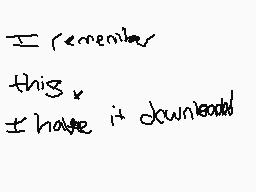 I remember
this.
I have it downloaded